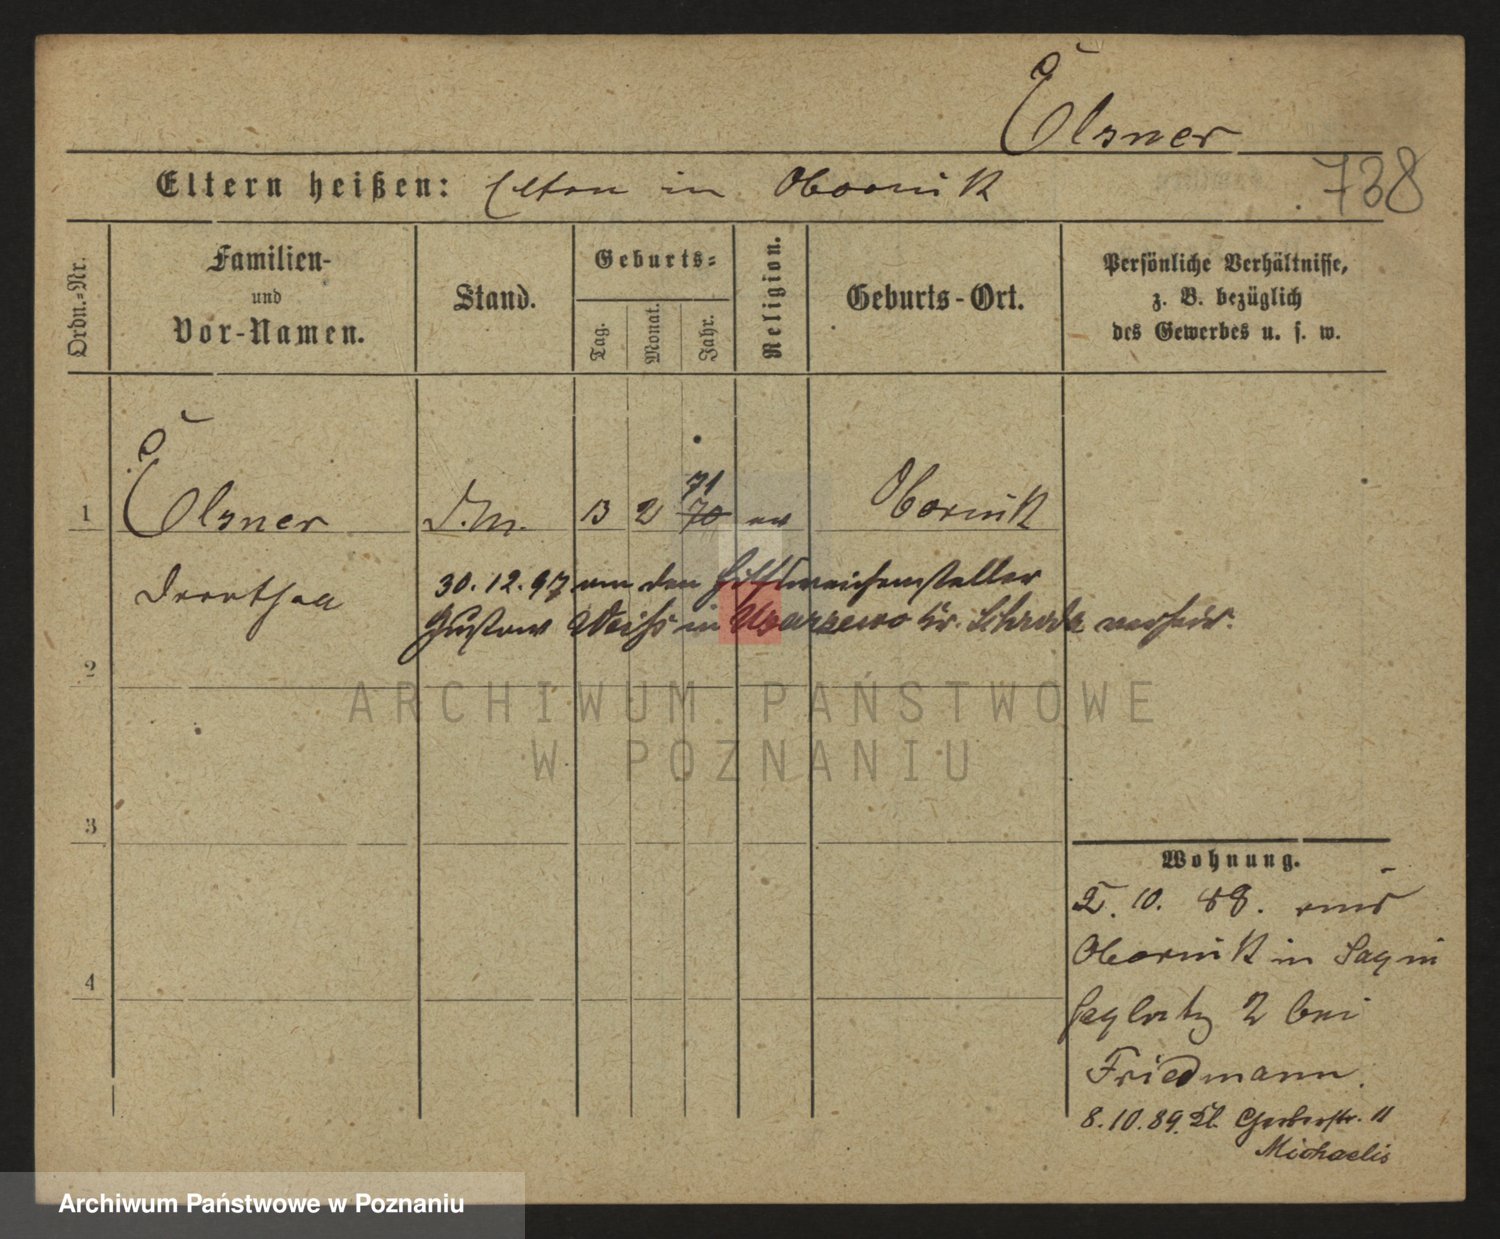 Elsner
Eltern heißen: Eltern in Obornik
738
Ordn.-Nr.
Familien-
und
Vor-Namen.
Stand.
Geburts-
Tag.
Monat.
Jahr.
Religion.
Geburts-Ort.
Persönliche Verhältnisse,
z. B. bezüglich
des Gewerbes u. s. w.
1 Elsner D.M. 13 2 70 71 ev Obornik
Dorothea
30.12.97 an den Hilfsweichensteller
Gustav Weiss in Uzarzewo Kr. Schroda verheir.
2
3
4
ARCHIWUM PAŃSTWOWE
W POZNANIU
Wohnung.
2. 10. 88. aus
Obornik in
2 bei
Friedmann.
8.10.89. Kl. Gerberstr. 11
Michaelis
Archiwum Państwowe w Poznaniu